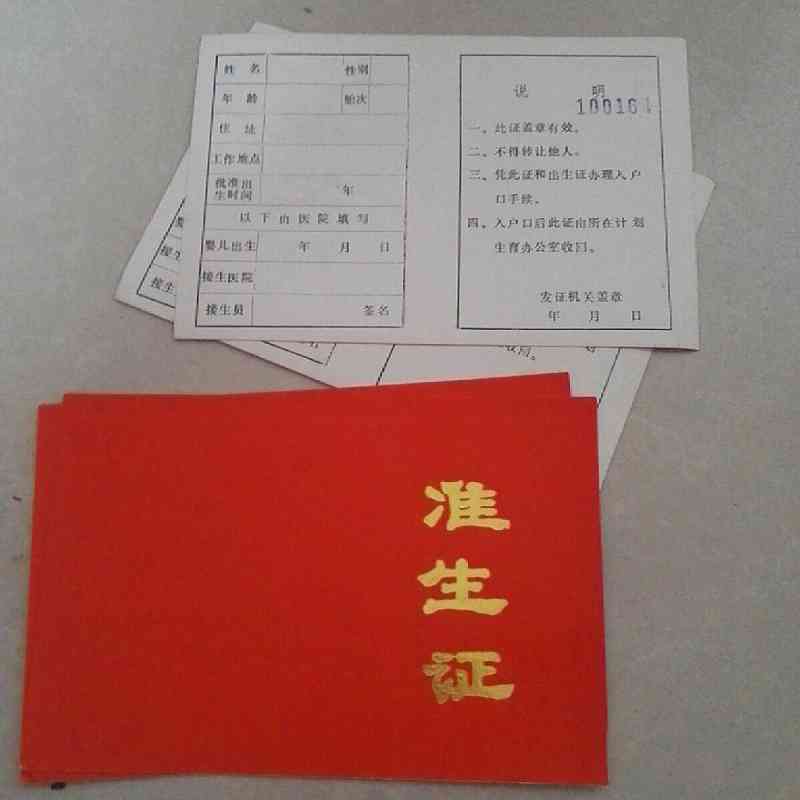 姓 名 性别
年 龄 胎次
住 址
工作地点
批准出
生时间 年
以下由医院填写
婴儿出生 年 月 日
接生医院
接生员 签名
说 明
100164
一、此证盖章有效。
二、不得转让他人。
三、凭此证和出生证办理入户
口手续。
四、入户口后此证由所在计划
生育办公室收回。
发证机关盖章
年 月 日
婴
接生
接生
准
生
证